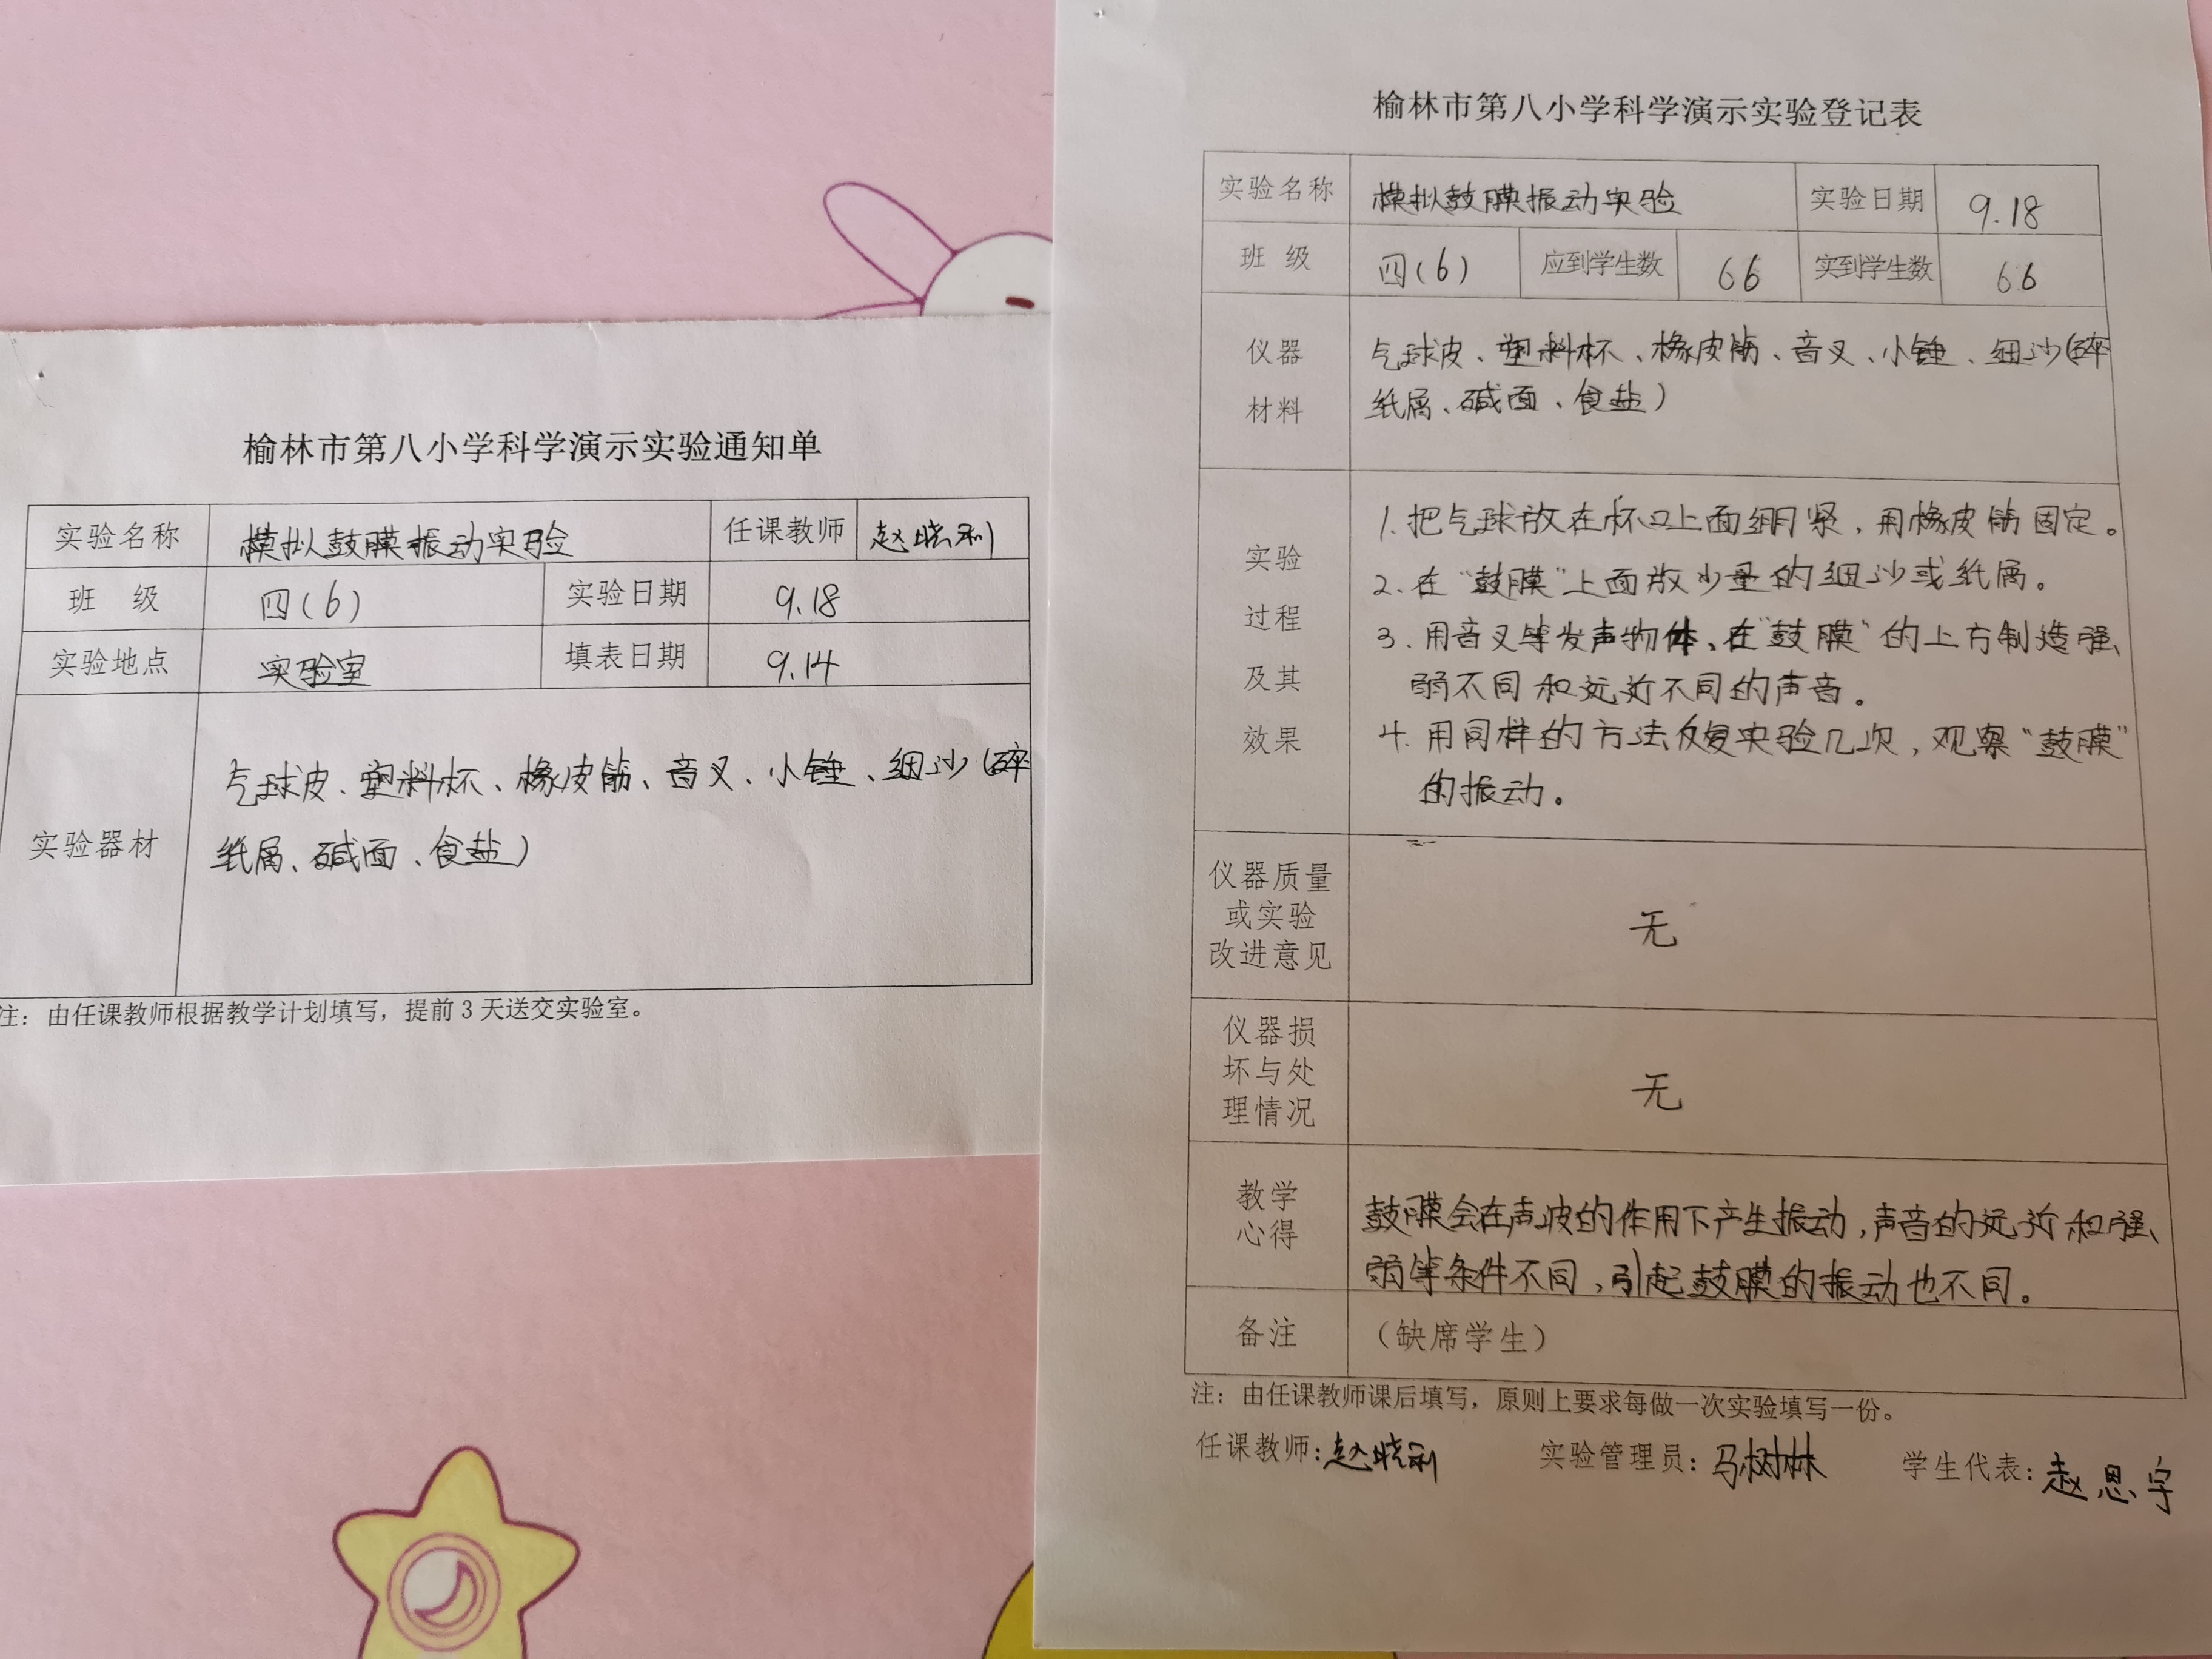 榆林市第八小学科学演示实验通知单
实验名称 模拟鼓膜振动实验 任课教师 赵晓利
班 级 四(6) 实验日期 9.18
实验地点 实验室 填表日期 9.14
实验器材 气球皮、塑料杯、橡皮筋、音叉、小锤、细沙(碎
纸屑、碱面、食盐)
注：由任课教师根据教学计划填写，提前3天送交实验室。
榆林市第八小学科学演示实验登记表
实验名称 模拟鼓膜振动实验 实验日期 9.18
班 级 四(6) 应到学生数 66 实到学生数 66
仪器
材料
气球皮、塑料杯、橡皮筋、音叉、小锤、细沙(碎
纸屑、碱面、食盐)
实验
过程
及其
效果
1.把气球放在杯口上面绷紧，用橡皮筋固定。
2.在“鼓膜”上面放少量的细沙或纸屑。
3.用音叉等发声物体、在“鼓膜”的上方制造强、
弱不同和远近不同的声音。
4.用同样的方法反复实验几次，观察“鼓膜”
的振动。
仪器质量
或实验
改进意见
无
仪器损
坏与处
理情况
无
教学
心得
鼓膜会在声波的作用下产生振动，声音的远近和强、
弱等条件不同，引起鼓膜的振动也不同。
备注 （缺席学生）
注：由任课教师课后填写，原则上要求每做一次实验填写一份。
任课教师：赵晓利 实验管理员：马树林 学生代表：赵思宇